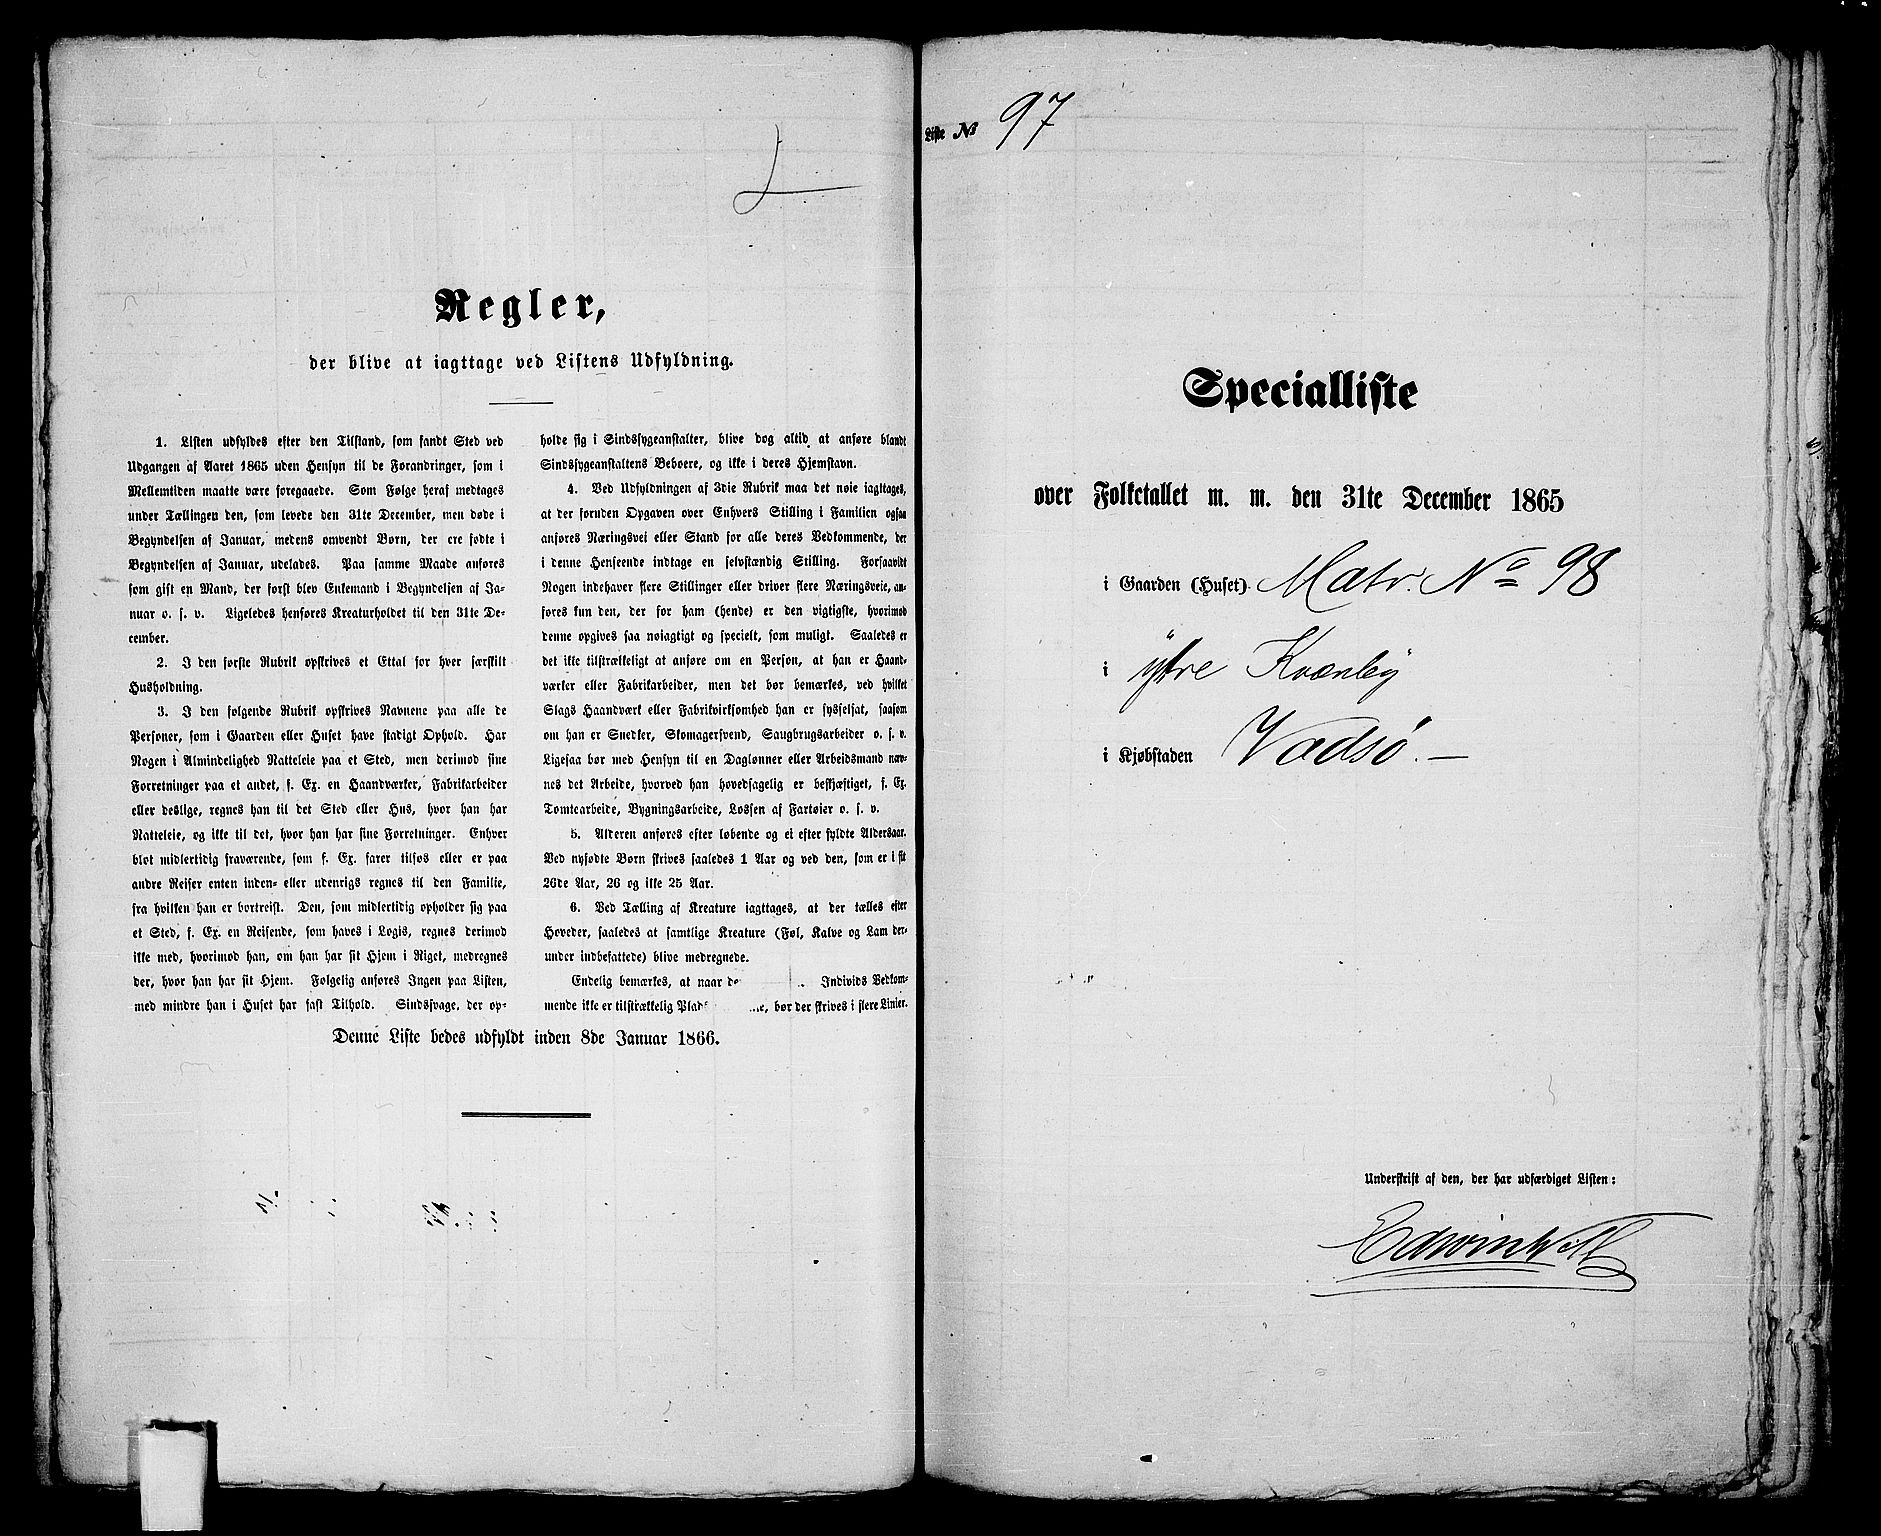 Regler,
der blive at iagttage ved Listens Udfyldning.
1. Listen udfyldes efter den Tilstand, som fandt Sted ved
Udgangen af Aaret 1865 uden Hensyn til de Forandringer, som i
Mellemtiden maatte være foregaaede. Som Følge heraf medtages
under Tællingen den, som levede den 31te December, men døde i
Begyndelsen af Januar, medens omvendt Børn, der ere fødte i
Begyndelsen af Januar, udelades. Paa samme Maade anføres
som gift en Mand, der først blev Enkemand i Begyndelsen af Ja-
nuar o. s. v. Ligeledes henføres Kreaturholdet til den 31te De-
cember.
2. I den første Rubrik opskrives et Ettal for hver særskilt
Husholdning.
3. I den følgende Rubrik opskrives Navnene paa alle de
Personer, som i Gaarden eller Huset have stadigt Ophold. Har
Nogen i Almindelighed Natteleie paa et Sted, men derimod sine
Forretninger paa et andet, f. Ex. en Haandværker, Fabrikarbeider
eller deslige, regnes han til det Sted eller Hus, hvor han har
Natteleie, og ikke til det, hvor han har sine Forretninger. Enhver
blot midlertidig fraværende, som f. Ex. farer tilsøs eller er paa
andre Reiser enten inden- eller udenrigs regnes til den Familie,
fra hvilken han er bortreist. Den, som midlertidig opholder sig paa
et Sted, f. Ex. en Reisende, som haves i Logis, regnes derimod
ikke med, hvorimod han, om han har sit Hjem i Riget, medregnes
der, hvor han har sit Hjem. Følgelig anføres Ingen paa Listen,
med mindre han i Huset har fast Tilhold. Sindssvage, der op-
holde sig i Sindssygeanstalter, blive dog altid at anføre blandt
Sindssygeanstaltens Beboere, og ikke i deres Hjemstavn.
4. Ved Udfyldningen af 3die Rubrik maa det nøie iagttages,
at der foruden Opgaven over Enhvers Stilling i Familien ogsaa
anføres Næringsvei eller Stand for alle deres Vedkommende, der
i denne Henseende indtage en selvstændig Stilling. Forsaavidt
Nogen indehaver flere Stillinger eller driver flere Næringsveie, an-
føres kun den, der for ham (hende) er den vigtigste, hvorimod
denne opgives saa nøiagtigt og specielt, som muligt. Saaledes er
det ikke tilstrækkeligt at anføre om en Person, at han er Haand-
værker eller Fabrikarbeider, men det bør bemærkes, ved hvilket
Slags Haandværk eller Fabrikvirksomhed han er sysselsat, saasom
om han er Snedker, Skomagersvend, Saugbrugsarbeider o. s. v.
Ligesaa bør med Hensyn til en Dagløner eller Arbeidsmand næv-
nes det Arbeide, hvorved han hovedsagelig er beskjæftiget, f. Ex.
Tomtearbeide, Bygningsarbeide, Lossen af Fartøier o. s. v.
5. Alderen anføres efter løbende og ei efter fyldte Aldersaar.
Ved nyfødte Børn skrives saaledes 1 Aar og ved den, som er i sit
26de Aar, 26 og ikke 25 Aar.
6. Ved Tælling af Kreature iagttages, at der tælles efter
Hoveder, saaledes at samtlige Kreature (Føl, Kalve og Lam der-
under indbefattede) blive medregnede.
Endelig bemærkes, at naar de Individs Vedkom-
mende ikke er tilstrækkelig Plads , bør der skrives i flere Linier.
Denne Liste bedes udfyldt inden 8de Januar 1866.
Liste № 97
Specialliste
over Folketallet m. m. den 31te December 1865
i Gaarden (Huset) Matr. No 98
i ytre Kvænby
i Kjøbstaden Vadsø. —
Underskrift af den, der har udfærdiget Listen: